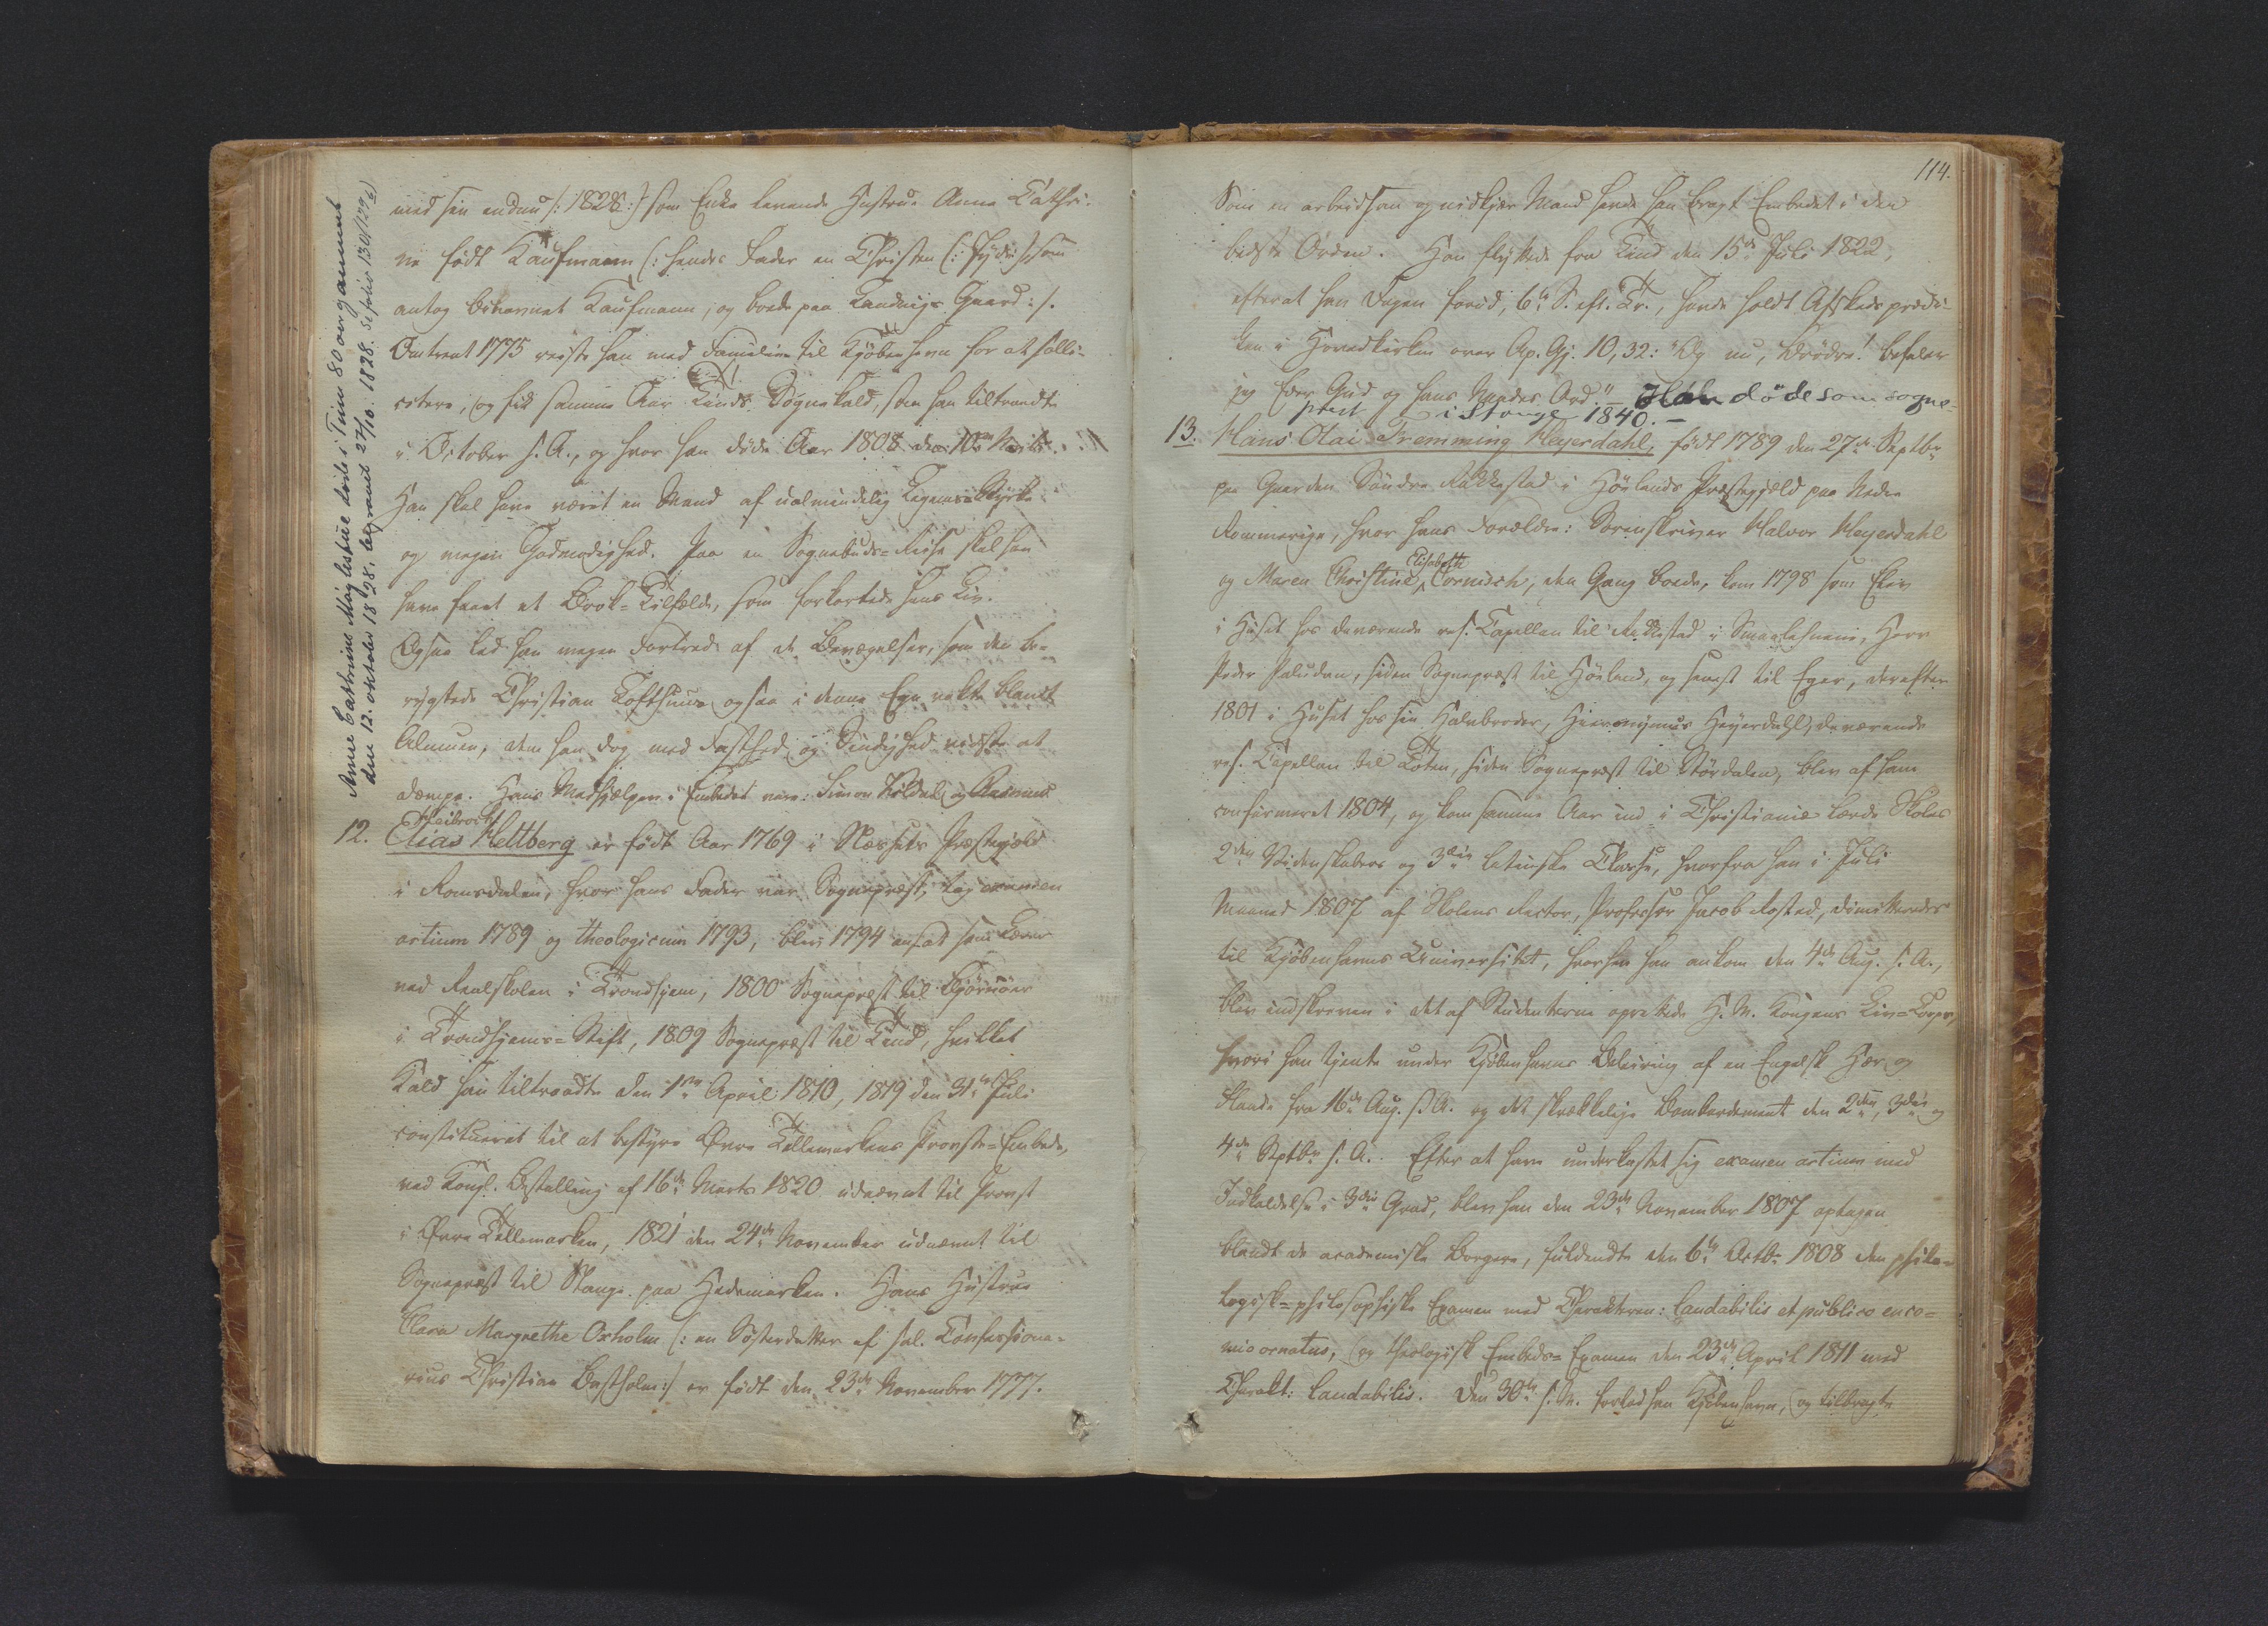 Anne Cathrine Mæglestue døde i Tinn 80 aar gammel
den 12. oktober 1828. begravet 27/10. 1828. Se folio 130/129
med sin endnu /: 1828 :/ som Enke levende Hustrue Anne Cathri-
ne født Kaufmann (: hendes Fader en Christen (: Jøde :) som
antog Binavnet Kaufmann, og boede paa Landvigs Gaard :/.
Omtrent 1775 reiste han med Familien til Kjøbenhavn for at solli-
citere, og fik samme Aar Tinds Sognekald, som han tiltraadte
i October s. A., og hvor han døde Aar 1808 den 10
Han skal have været en Mand af ualmindelig Legems-Styrke
og megen Godmodighed. Paa en Sognebuds-Reise skal han
have faaet et Brok-Tilfælde, som forkortede hans Liv.
Ogsaa led han megen Fortred af de Bevægelser, som den be-
rygtede Christian Lofthuus ogsaa i denne Egn vakte blandt
Almuen, dem han dog med Fasthed og Sindighed vidste at
dæmpe. Hans Medhjælpere i Embedet vare: Simon og Rasmus
12. Elias Heltberg er født Aar 1769 i Næssets Præstegjeld
i Romsdalen, hvor hans Fader var Sognepræst, tog examen
artium 1789 og theologicum 1793, blev 1794 ansat som Lærer
ved Realskolen i Trondhjem, 1800 Sognepræst til Bjørnøer
i Trondhjems-Stift, 1809 Sognepræst til Tind, hvilket
Kald han tiltraadte den 1ste April 1810, 1819 den 31te Juli
constitueret til at bestyre Øvre Tellemarkens Provste-Embede,
ved Kongl. Bestalling af 16de Marts 1820 udnævnt til Provst
i Øvre Tellemarken, 1821 den 24de November udnævnt til
Sognepræst til Stange paa Hedemarken. Hans Hustrue
Clara Margrethe Oxholm (: en Søsterdatter af sal. Confessiona-
rius Christian Bastholm :/ er født den 23de November 1777.
114.
Som en arbeidsom og nidkjær Mand havde han bragt Embedet i den
bedste Orden. Han flyttede fra Tind den 15de Juli 1822,
efterat han Dagen forud, 6te S. eft. Tr., havde holdt Afskedsprædi-
ken i Hovedkirken over Ap. Gj. 10, 32: "Og nu, Brødre! befaler
jeg Eder Gud og hans Naades Ord". – Han døde som sogne-
prest i Stange 1840. –
13. Hans Olai Fremming Heyerdahl, født 1789 den 27de Septbr
paa Gaarden Søndre Rakkestad i Hølands Præstegjeld paa Nedre
Rommerige, hvor hans Forældre: Sorenskriver Halvor Heyerdahl
og Maren Christine Elisabeth Cornisch, den Gang boede, kom 1798 som Elev
i Huset hos daværende res. Capellan til Rakkestad i Smaalehnene, Herr
Peder Paludan, siden Sognepræst til Høland, og senest til Eger, derefter
1801 i Huset hos sin Halvbroder, Hieronymus Heyerdahl, daværende
res. Capellan til Toten, siden Sognepræst til Størdalen, blev af ham
confirmeret 1804, og kom samme Aar ind i Christiania lærde Skoles
2den Videnskabers og 3die latinske Classe, hvorfra han i Juli
Maaned 1807 af Skolens Rector, Professor Jacob Rosted, dimitteredes
til Kjøbenhavns Universitet, hvorhen han ankom den 4de Aug. s. A.,
blev indskreven i det af Studenterne oprettede H. M. Kongens Liv-Corps,
hvori han tjente under Kjøbenhavns Beleiring af en Engelsk Hær og
Flaade fra 16de Aug. s. A. og det skrækkelige Bombardement den 2den, 3die og
4de Septbr s. A. Efter at have underkastet sig examen artium med
Indkaldelse i 3die Grad, blev han den 23de November 1807 optagen
blandt de academiske Borgere, fuldendte den 6te Octbr 1808 den philo-
logisk-philosophiske Examen med Charakteren: Laudabilis et publico enco-
mio ornatus, og theologisk Embeds-Examen den 23de April 1811 med
Charakt: Laudabilis. Den 30te s. M. forlod han Kjøbenhavn, og tilbragte